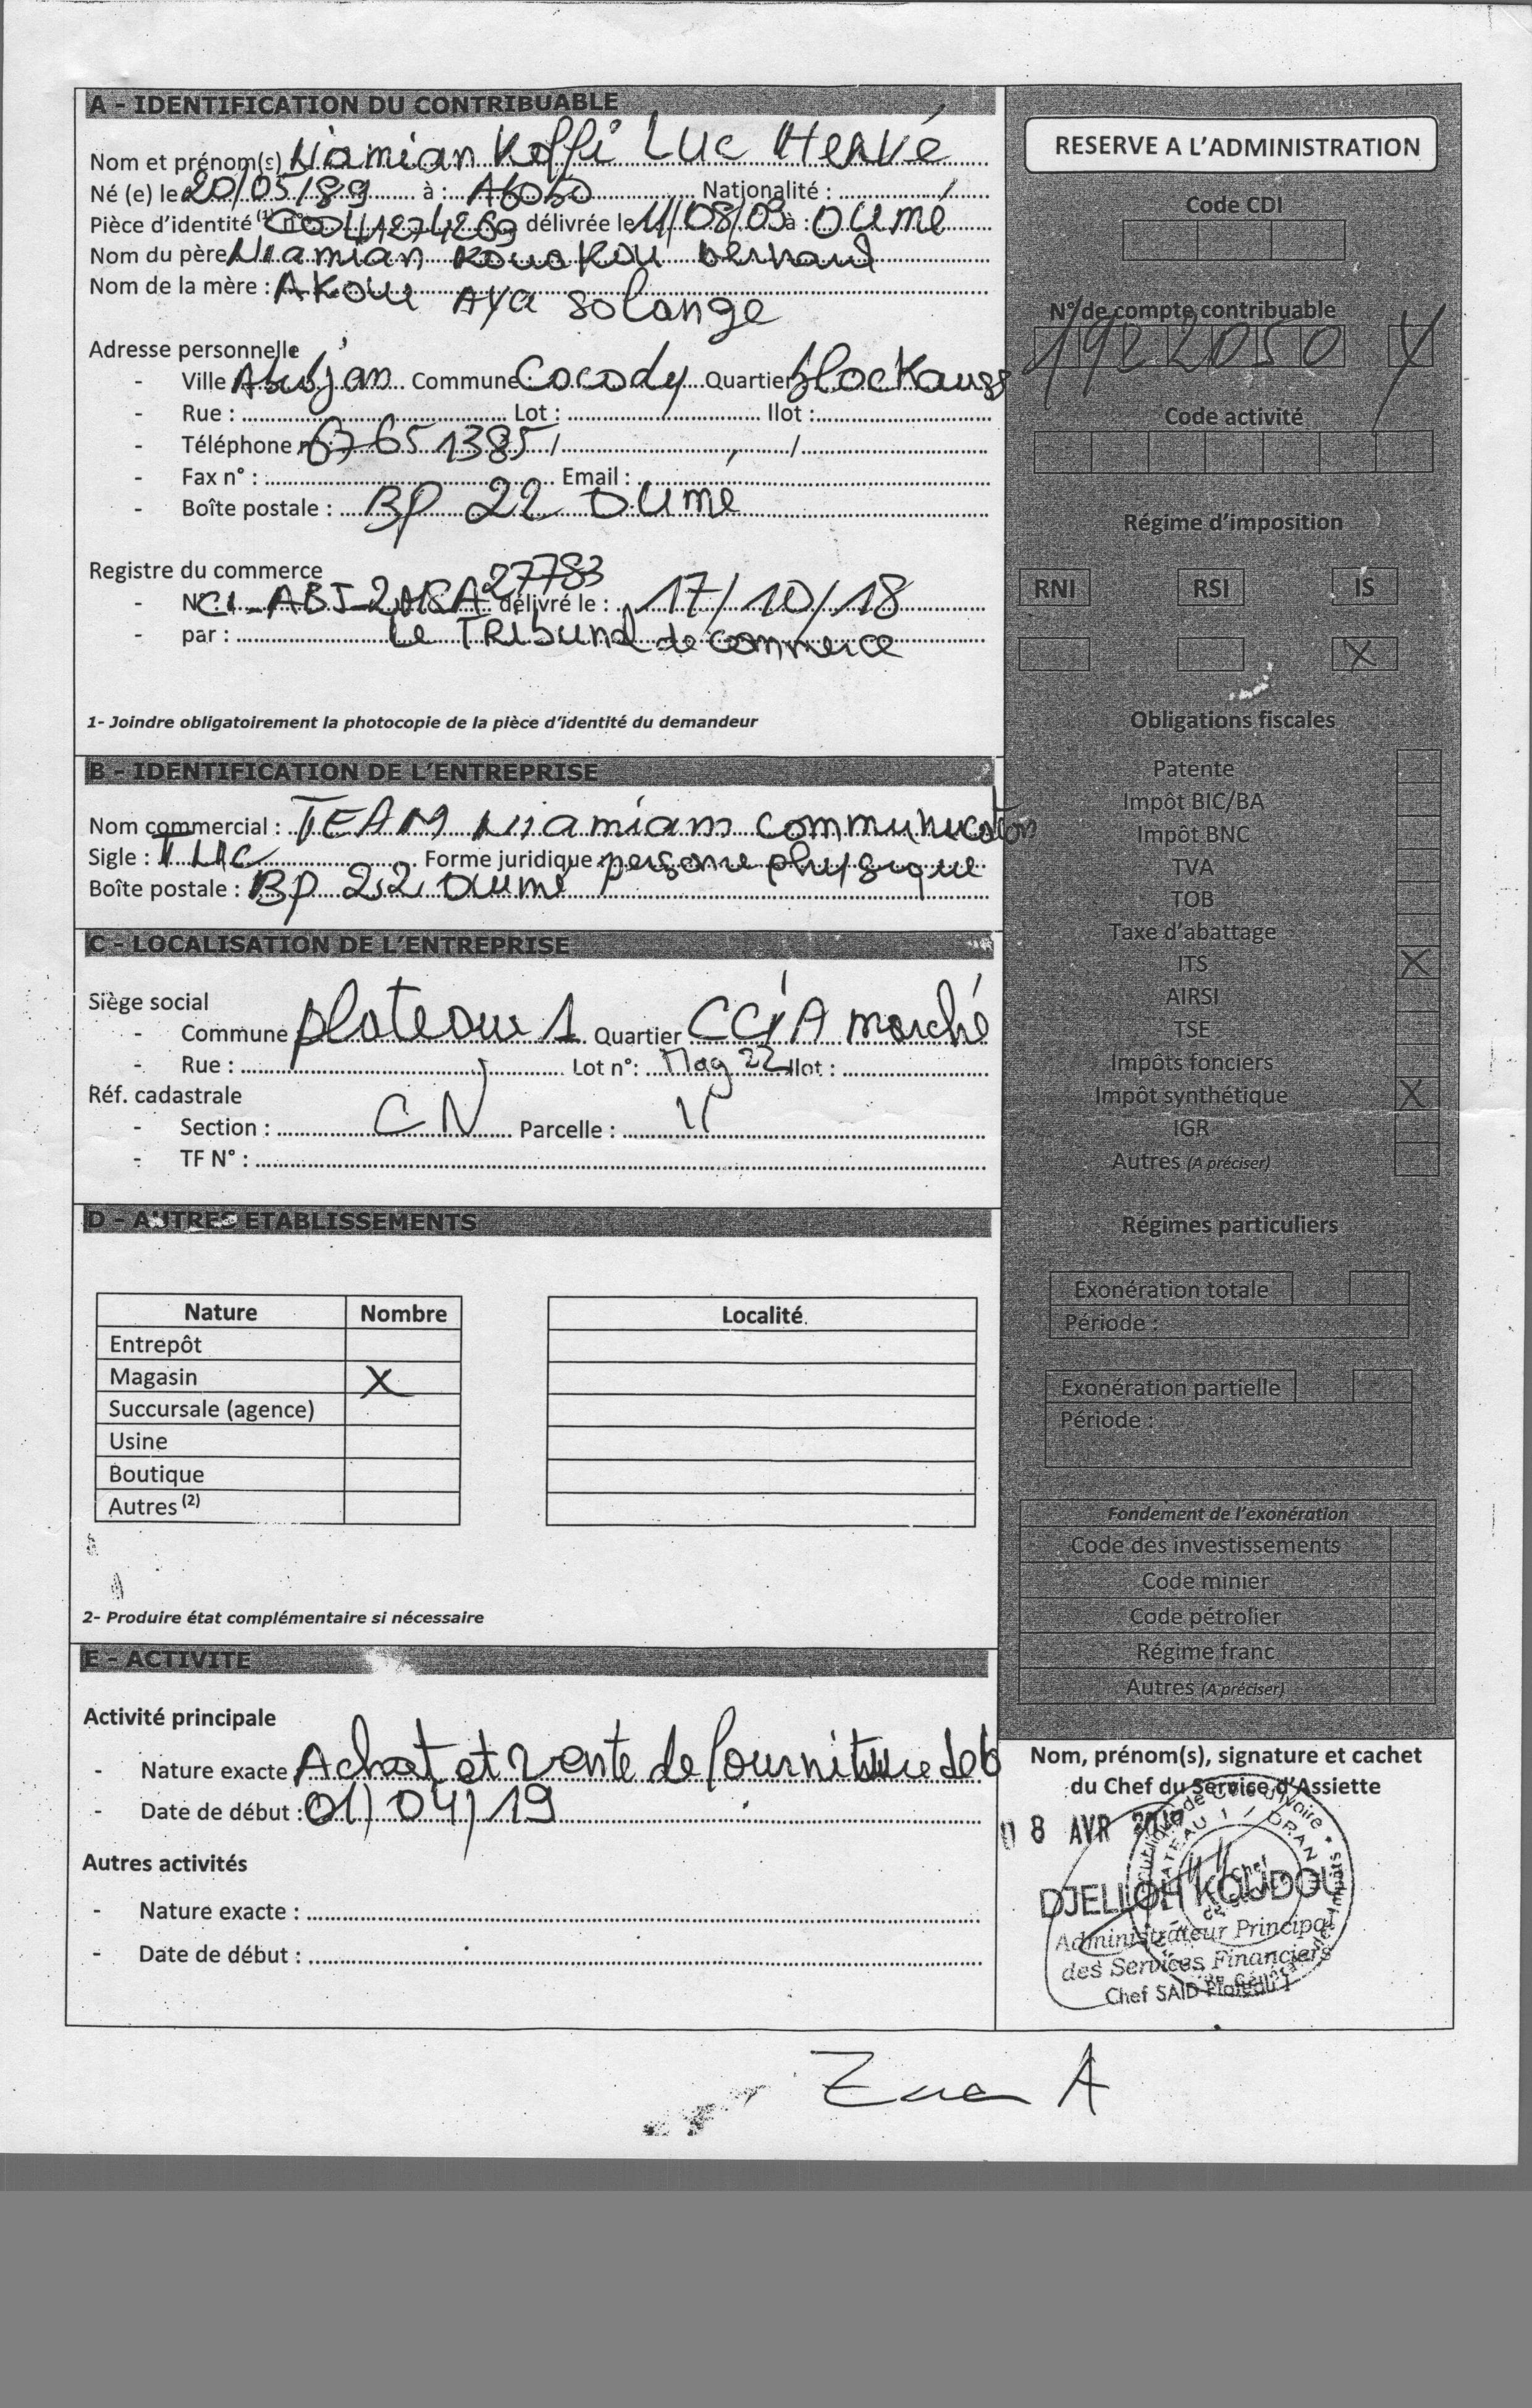 A - IDENTIFICATION DU CONTRIBUABLE
Nom et prénom(s) Niamian Koffi Luc Hervé
Né (e) le 20/05/89 à : Abobo Nationalité :
Pièce d'identité (1) n° délivrée le 11/08/09 à : OUMé
Nom du père Niamian Kouakou bernard
Nom de la mère : AKOUE AYA Solange
Adresse personnelle
- Ville Abidjan Commune : Cocody Quartier blockauss
- Rue : Lot : Ilot :
- Téléphone n 67651385 / /
- Fax n° : Email :
- Boîte postale : BP 22 OUMé
Registre du commerce
- N CI-ABJ-2018A 27783 délivré le : 17/10/18
- par : Le TRibunal de commerce
1- Joindre obligatoirement la photocopie de la pièce d'identité du demandeur
B - IDENTIFICATION DE L'ENTREPRISE
Nom commercial : TEAM Niamian communication
Sigle : Forme juridique : personne physique
Boîte postale : BP 22 Oumé
C - LOCALISATION DE L'ENTREPRISE
Siège social
- Commune : plateau 1 Quartier CCIA marché
- Rue : Lot n°: Mag 22 Ilot :
Réf. cadastrale
- Section : CN Parcelle :
- TF N° :
D - AUTRES ETABLISSEMENTS
Nature Nombre Localité
Entrepôt
Magasin X
Succursale (agence)
Usine
Boutique
Autres (2)
2- Produire état complémentaire si nécessaire
E - ACTIVITE
Activité principale
- Nature exacte Achat et vente de fourniture de b
- Date de début : 01/04/19
Autres activités
- Nature exacte :
- Date de début :
RESERVE A L'ADMINISTRATION
Code CDI
N° de compte contribuable
1922050 Y
Code activité
Régime d'imposition
RNI RSI IS
X
Obligations fiscales
Patente
Impôt BIC/BA
Impôt BNC
TVA
TOB
Taxe d'abattage
ITS X
AIRSI
TSE
Impôts fonciers
Impôt synthétique X
IGR
Autres (A préciser)
Régimes particuliers
Exonération totale
Période :
Exonération partielle
Période :
Fondement de l'exonération
Code des investissements
Code minier
Code pétrolier
Régime franc
Autres (A préciser)
Nom, prénom(s), signature et cachet
du Chef du Service d'Assiette
08 AVR
DJELLOH KOUDOU
Administrateur Principal
des Services Financiers
Chef SAID Plateau I